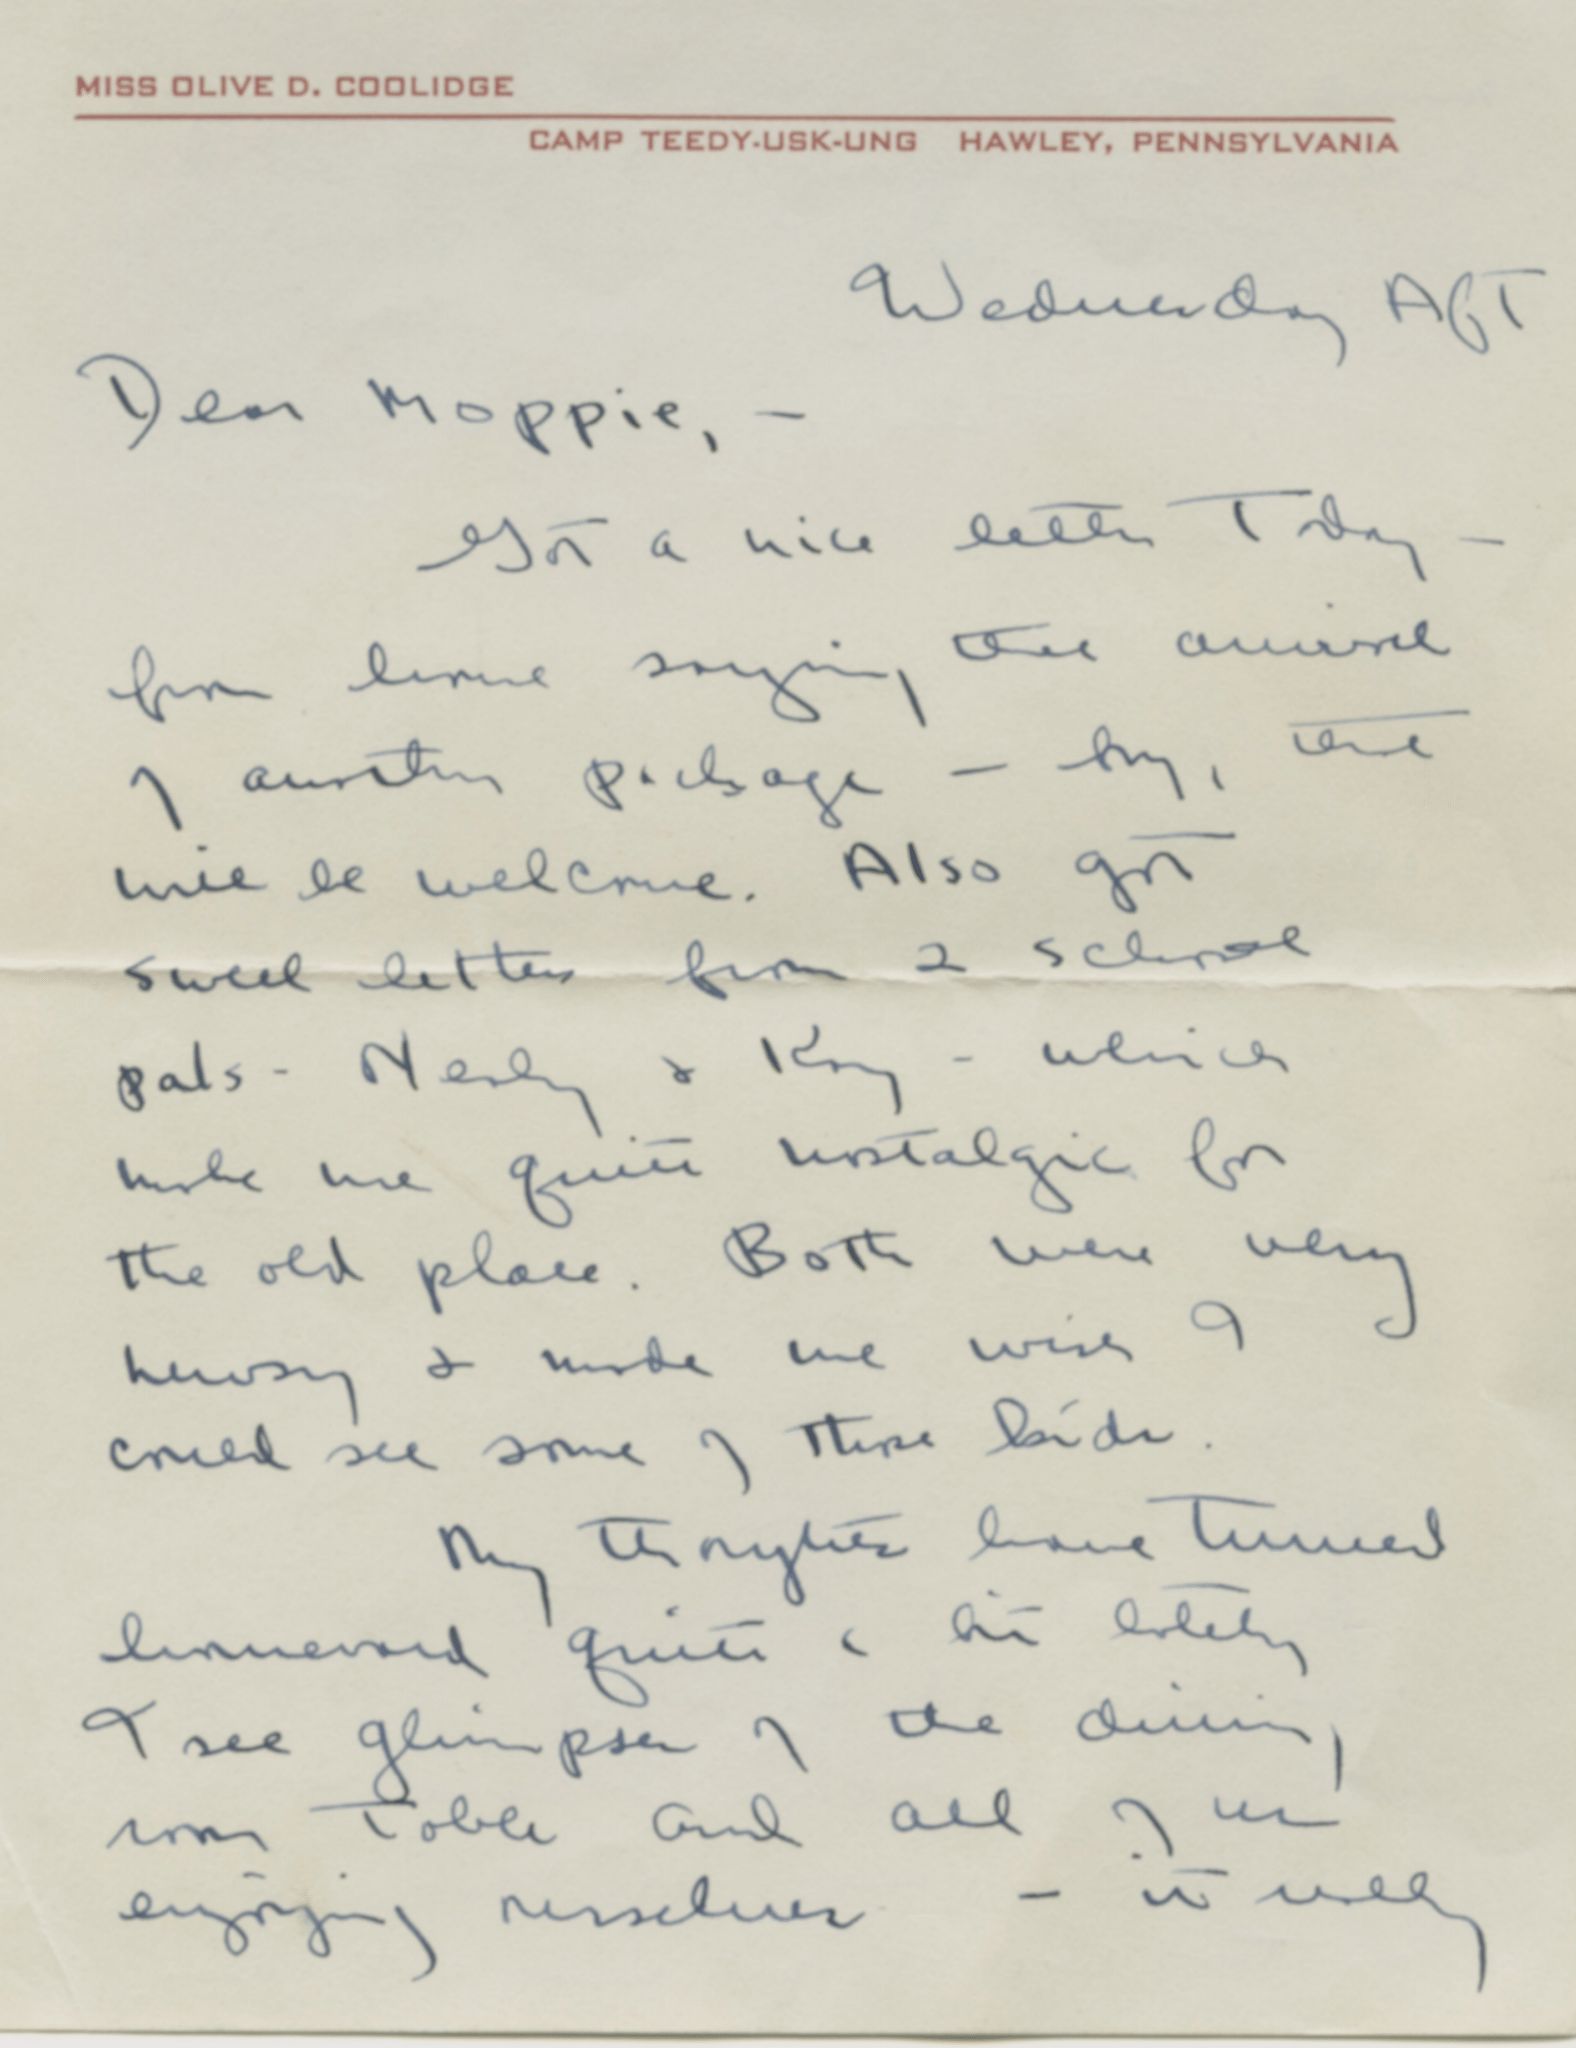 MISS OLIVE D. COOLIDGE
CAMP TEEDY-USK-UNG HAWLEY, PENNSYLVANIA
Wednesday AFT
Dear Moppie, -
Got a nice letter Today -
from home saying the arrival
of another package - boy, that
will be welcome. Also got
sweet letters from 2 school
pals - & Kay - which
make me quite nostalgic for
the old place. Both were very
newsy & made me wish I
could see some of those kids.
My thoughts have turned
homeward quite a bit lately
I see glimpses of the dining
room table and all of us
enjoying ourselves - it really